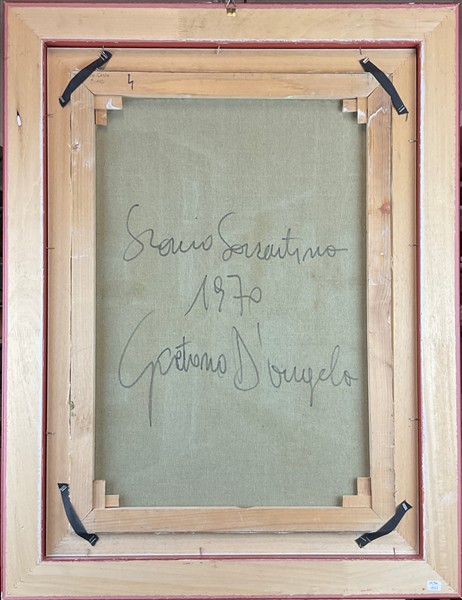 Scorcio Sorrentino
1970
Gaetano D'Angelo